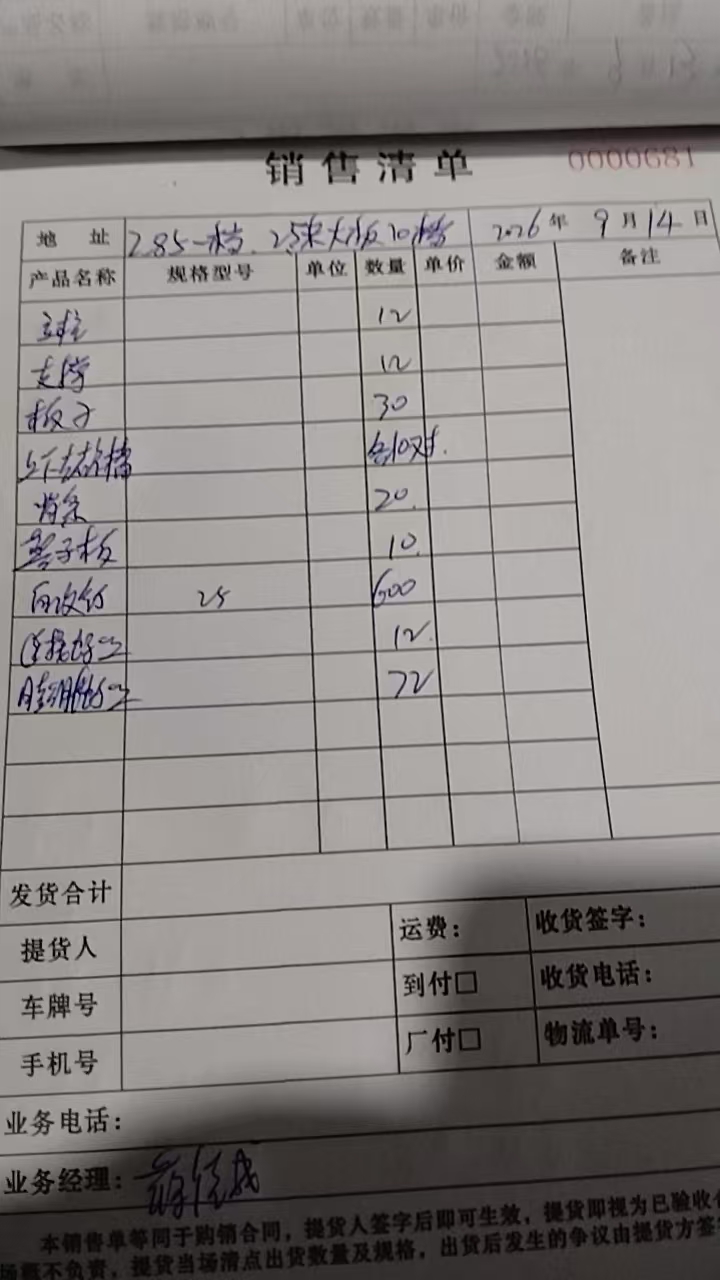 销售清单 0000681
地址 2.85一档.25米大板10档 2026年9月14日
产品名称 规格型号 单位 数量 单价 金额 备注
立柱 12
支撑 12
板子 30
上下卡槽 各10对.
背条 20.
垫子板 10.
自攻钉 25 600
连接螺丝 12.
膨胀螺丝 72
发货合计
提货人 运费: 收货签字:
车牌号 到付□ 收货电话:
手机号 厂付□ 物流单号:
业务电话:
业务经理:
本销售单等同于购销合同，提货人签字后即可生效，提货即视为已验收
不负责，提货当场清点出货数量及规格，出货后发生的争议由提货方